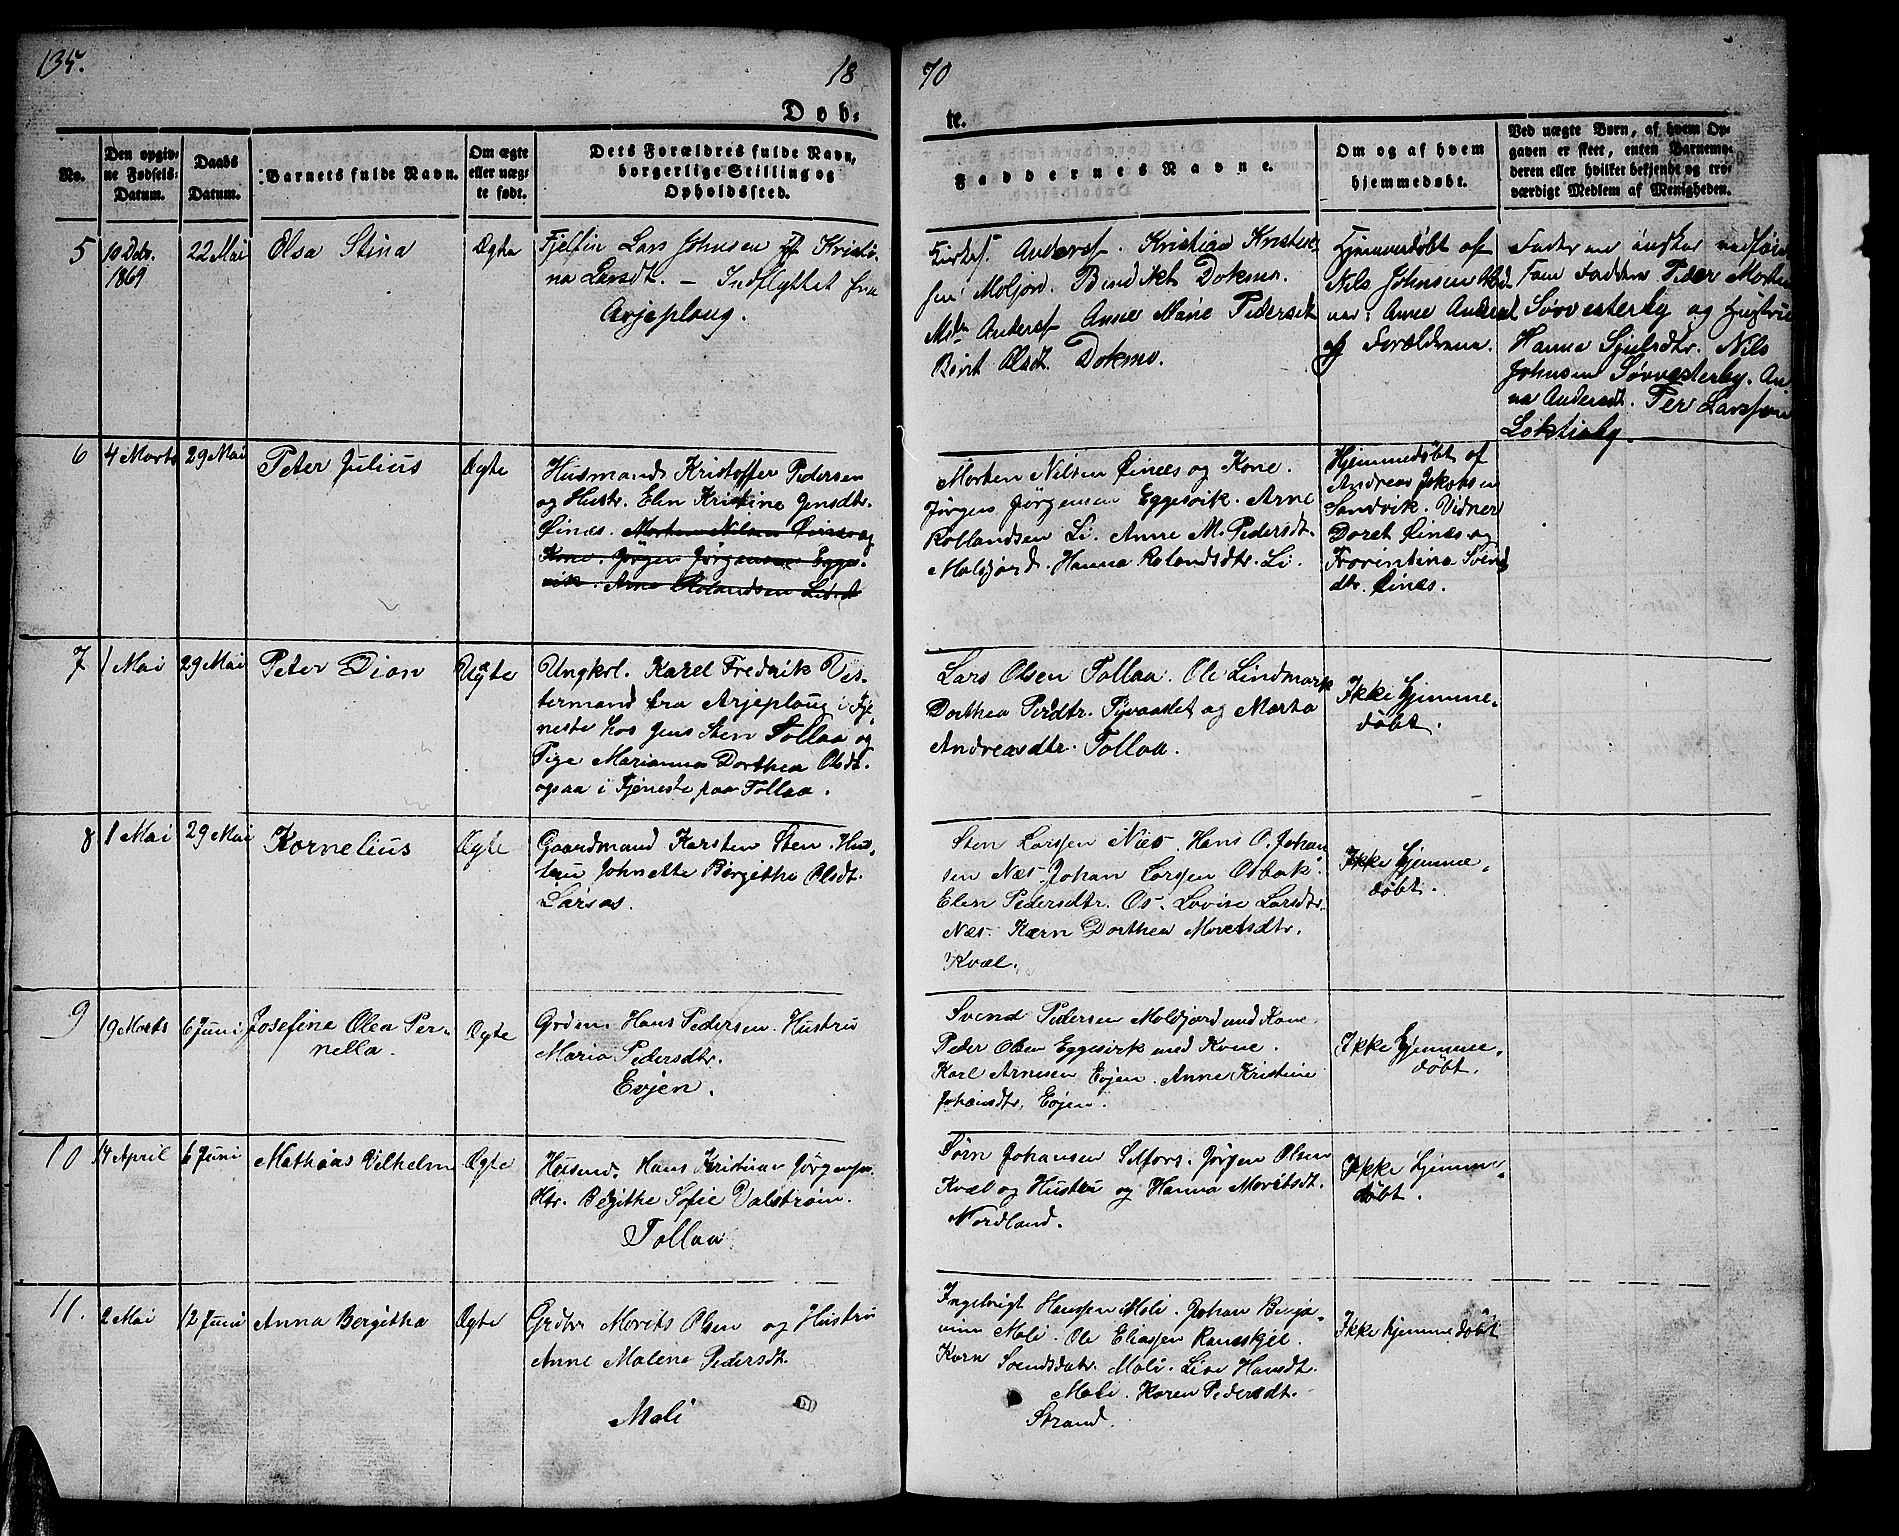 135.
18
70
Døb-
te.
No.
Den opgiv-
ne Fødsels-
Datum.
Daabs
Datum.
Barnets fulde Navn.
Om ægte
eller uæg-
te født.
Dets Forældres fulde Navn,
borgerlige Stilling og
Opholdssted.
Faddernes Navne.
Om og af hvem
hjemmedøbt.
Ved uægte Børn, af hvem Op-
gaven er skeet, enten Barnemo-
deren eller hvilket bekjendt og tro-
værdigt Medlem af Menigheden.
5
10 Dcbr.
1869
22 Mai
Elsa Stina
Ægte
Fjelfin Lars Johnsen Kristi-
na Larsdt. — Indflyttet fra
Arjeploug.
Anders. Kristian Kristen-
sen Moljord. Bendikt Dokmo.
Anders Anne Marie Pedersdt
Berit Olsdt. Dokmo.
Hjemmedøbt af
Nils Johnsen
Anne Andersdt
og Forældrene.
Faderen ønsker
Fadder Peder Morten
Sørvesterby og Hustru
Hanna Sjulsdtr. Nils
Johnsen Sørvesterby. An-
na Andersdt. Per Larssen
6
4 Marts
29 Mai
Peter Julius
Ægte
Husmand Kristoffer Pedersen
og Hustr. Elen Kristine Jensdtr.
Einæs. Morten Nilsen Einæs og
Kone. Jørgen Jørgensen Egges-
vik. Arne Rolandsen Li
Morten Nilsen Einæs og Kone.
Jørgen Jørgensen Eggesvik. Arne
Rollandsen Li. Anne M. Pedersdt.
Moldjord. Hanna Rolandsdtr. Li.
Hjemmedøbt af
Andreas Jakobsen
Sandvik. Vidner
Doret Einæs og
Frorintina Svends
dtr. Einæs.
7
1 Mai
29 Mai
Peter Dion
Uægte
Ungkrl. Karel Fredrik Ves-
termand fra Arjeploug i Tje-
neste hos Jens Sten Tollaa og
Pige Marianna Dorthea Olsdt.
ogsaa i Tjeneste paa Tollaa.
Lars Olsen Tollaa. Ole Lindmark
Dorthea Perdtr. Tyvaaslet og Marta
Andreasdtr. Tollaa.
Ikke hjemme-
døbt.
8
1 Mai
29 Mai
Kornelius
Ægte
Gaardmand Karsten Sten. Hus-
tru Johnette Bergitha Olsdt.
Larsos.
Sten Larssen Næs. Hans O. Johan-
sen Næs. Johan Larssen Osbak.
Elen Pedersdtr. Os. Lovise Larsdtr.
Næs. Karn Dorthea Moretsdtr.
Kvæl.
Ikke hjemme-
døbt.
9
19 Marts
6 Juni
Josefine Olea Per-
nella.
Ægte
Grdm. Hans Pedersen. Hustru
Maria Pedersdtr.
Evjen.
Svend Pedersen Moldjord med Kone.
Peder Olsen Eggesvik med Kone.
Karl Arnesen Evjen. Anne Kristine
Johansdtr. Evjen.
Ikke hjemme-
døbt.
10
14 April
6 Juni
Mathias Vilhelm
Ægte
Husmd. Hans Kristian Jørgensen.
Htr. Bergithe Sofie Valstrøm.
Tollaa
Sørn Johansen Selfors. Jørgen Olsen
Kvæl og Hustru og Hanna Moretsdt.
Nordland.
Ikke hjemme-
døbt.
11.
2 Mai
12 Juni
Anna Bergitha
Ægte
Grdbr. Morets Olsen og Hustru
Anne Malene Pedersdt.
Moli
Ingebrigt Hanssen Moli. Johan Benja-
min Moli. Ole Eliassen Raneskjel.
Karn Svendsdatr. Moli. Lise Hansdt.
Moli. Karen Pedersdt.
Strand.
Ikke hjemmedøbt